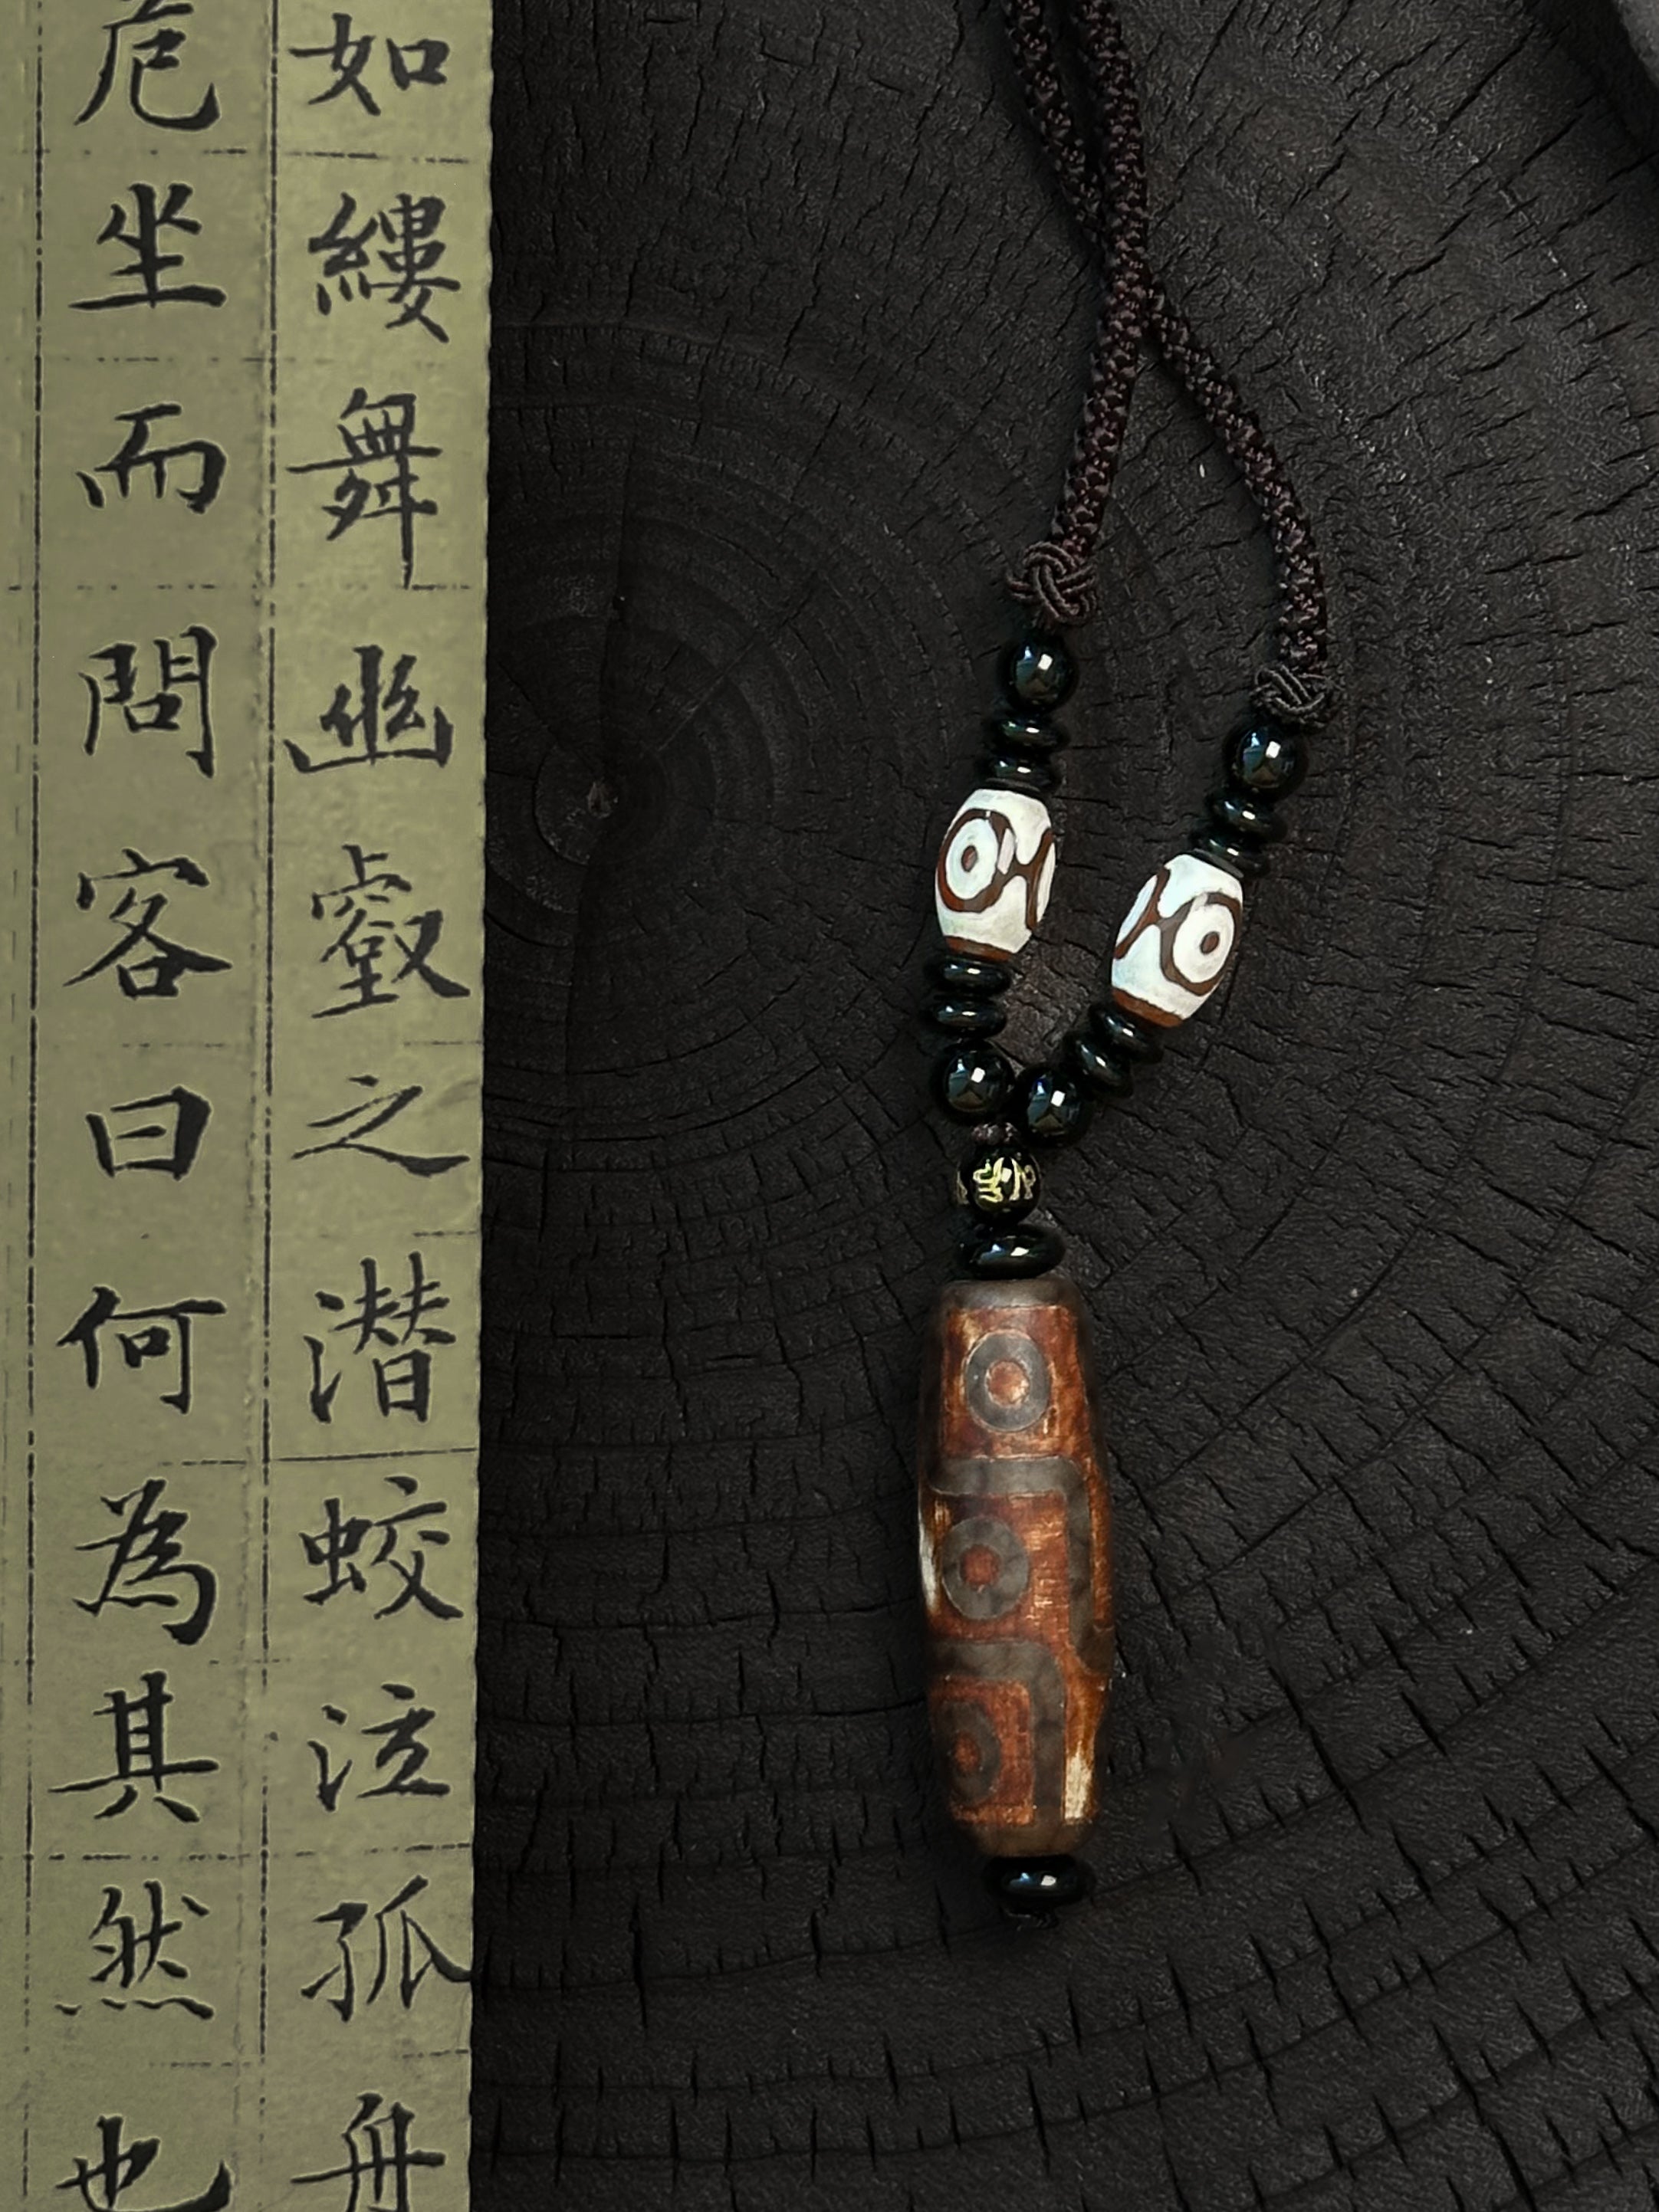 如縷舞幽壑之潛蛟泣孤舟
危坐而問客曰何為其然也